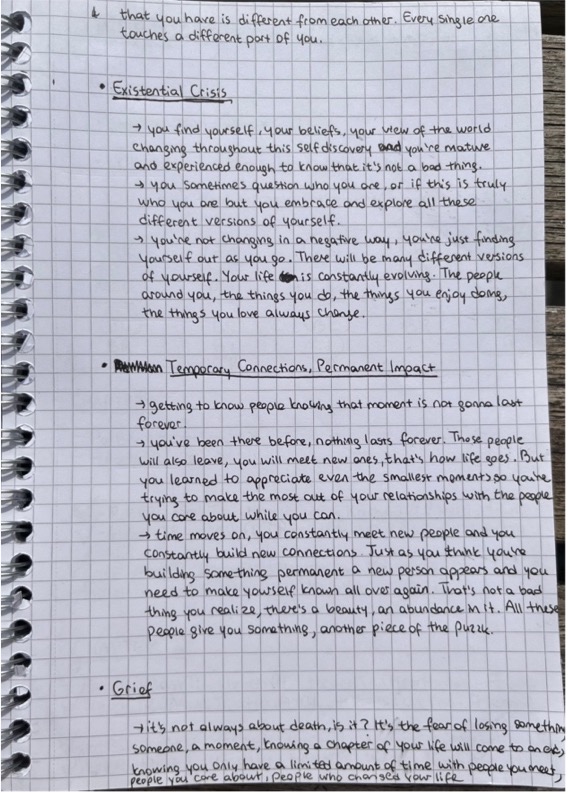 that you have is different from each other. Every single one
touches a different part of you.
• Existential Crisis
→ you find yourself, your beliefs, your view of the world
changing throughout this self discovery and you're mature
and experienced enough to know that it's not a bad thing.
→ you sometimes question who you are, or if this is truly
who you are but you embrace and explore all these
different versions of yourself.
→ you're not changing in a negative way, you're just finding
yourself out as you go. There will be many different versions
of yourself. Your life is constantly evolving. The people
around you, the things you do, the things you enjoy doing,
the things you love always change.
• Temporary Connections, Permanent Impact
→ getting to know people knowing that moment is not gonna last
forever.
→ you've been there before, nothing lasts forever. These people
will also leave, you will meet new ones, that's how life goes. But
you learned to appreciate even the smallest moments so you're
trying to make the most out of your relationships with the people
you care about while you can.
→ time moves on, you constantly meet new people and you
constantly build new connections. Just as you think you're
building something permanent a new person appears and you
need to make yourself known all over again. That's not a bad
thing you realize, there's a beauty, an abundance in it. All these
people give you something, another piece of the puzzle.
• Grief
→ it's not always about death, is it? It's the fear of losing somethin
someone, a moment, knowing a chapter of your life will come to an end,
knowing you only have a limited amount of time with people you meet,
people you care about, people who changed your life